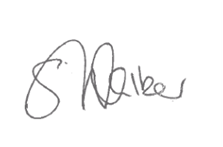 S. Walker